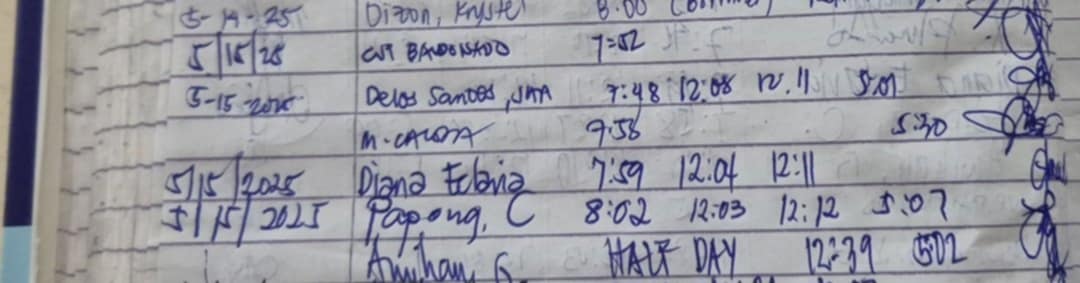 5-14-25 Dizon, Krystel 8:00
5/15/25 7:52
5-15-2025 Delos Santos, 7:48 12:08 12:11 5:01
M. 7:58 5:30
5/15/2025 Diana 7:59 12:04 12:11
5/15/2025 Papong, C 8:02 12:03 12:12 5:07
Amihan, G HALF DAY 12:39 5:02